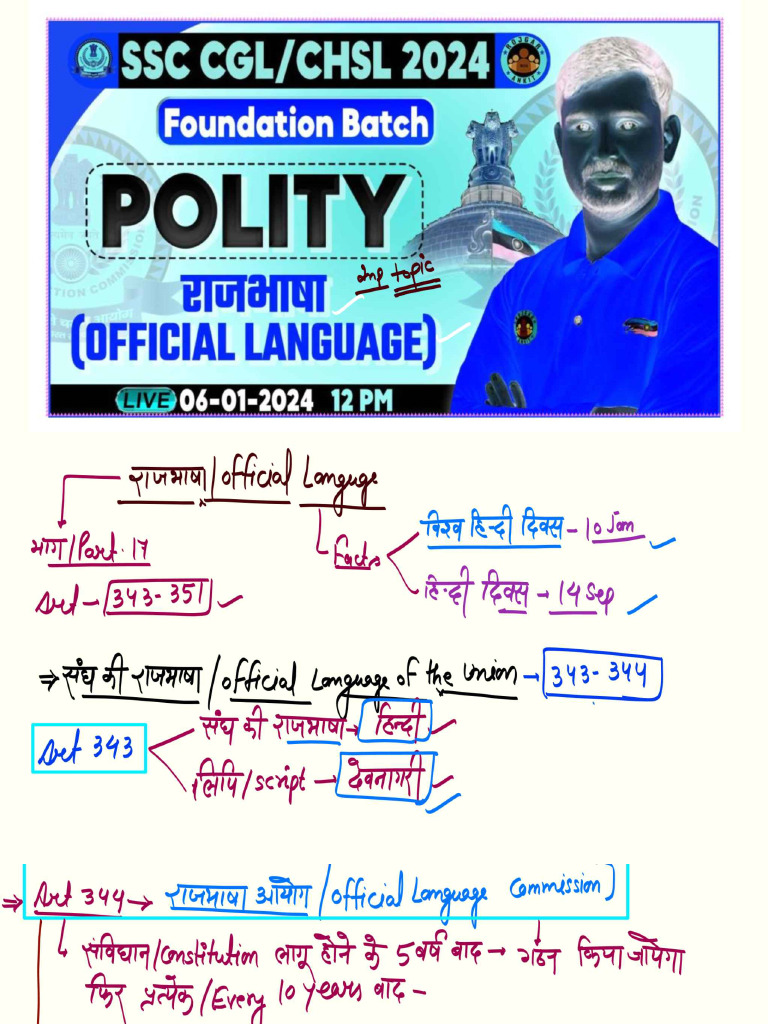 SSC CGL/CHSL 2024
Foundation Batch
POLITY
राजभाषा
Imp topic
(OFFICIAL LANGUAGE)
LIVE 06-01-2024 12 PM
राजभाषा/official Languge
भाग/Part-17
Facts
विश्व हिन्दी दिवस - 10 Jan
Art - 343-351
हिन्दी दिवस - 14 Sep
⇒ संघ की राजभाषा / official Language of the Union → 343-344
Art 343
संघ की राजभाषा → हिन्दी
लिपि/script → देवनागरी
⇒ Art 344 → राजभाषा आयोग / official Language Commission)
संविधान/Constitution लागू होने के 5 वर्ष बाद → गठन किया जायेगा
फिर प्रत्येक/Every 10 years बाद -